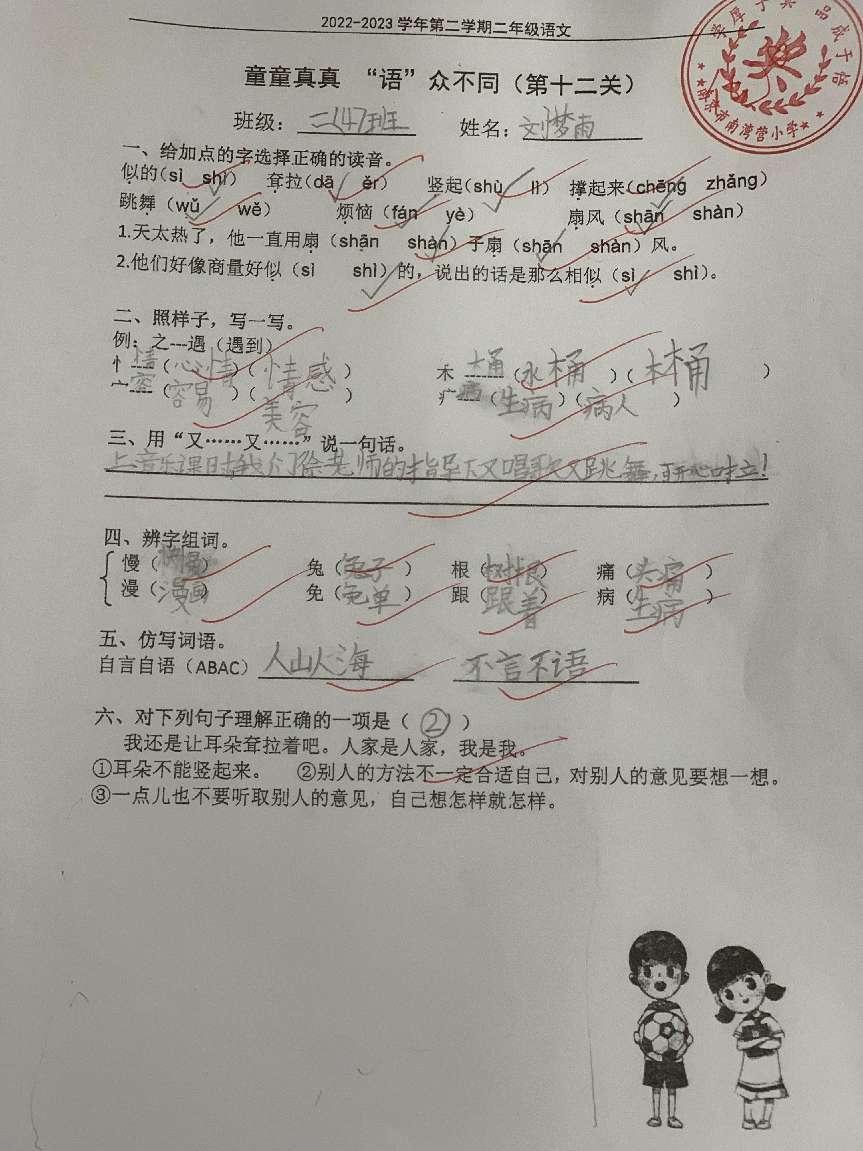 2022-2023 学年第二学期二年级语文
童童真真 “语”众不同（第十二关）
班级：二（4）班 姓名：刘梦雨
一、给加点的字选择正确的读音。
似的（sì shì） 耷拉（dā ěr） 竖起（shù lì） 撑起来（chēng zhǎng）
跳舞（wǔ wě） 烦恼（fán yè） 扇风（shān shàn）
1.天太热了，他一直用扇（shān shàn）子扇（shān shàn）风。
2.他们好像商量好似（sì shì）的，说出的话是那么相似（sì shì）。
二、照样子，写一写。
例：之---遇（遇到）
忄----情（心情）（情感） 木-----桶（水桶）（木桶）
宀----容（容易）（美容） 疒-----病（生病）（病人）
三、用“又……又……”说一句话。
上音乐课时我们在徐老师的指导下又唱歌又跳舞，可开心啦！
四、辨字组词。
慢（） 兔（兔子） 根（树根） 痛（头痛）
漫（漫画） 免（免单） 跟（跟着） 病（生病）
五、仿写词语。
自言自语（ABAC）人山人海 不言不语
六、对下列句子理解正确的一项是（②）
我还是让耳朵耷拉着吧。人家是人家，我是我。
①耳朵不能竖起来。 ②别人的方法不一定合适自己，对别人的意见要想一想。
③一点儿也不要听取别人的意见，自己想怎样就怎样。
品成于悟
南湾营小学